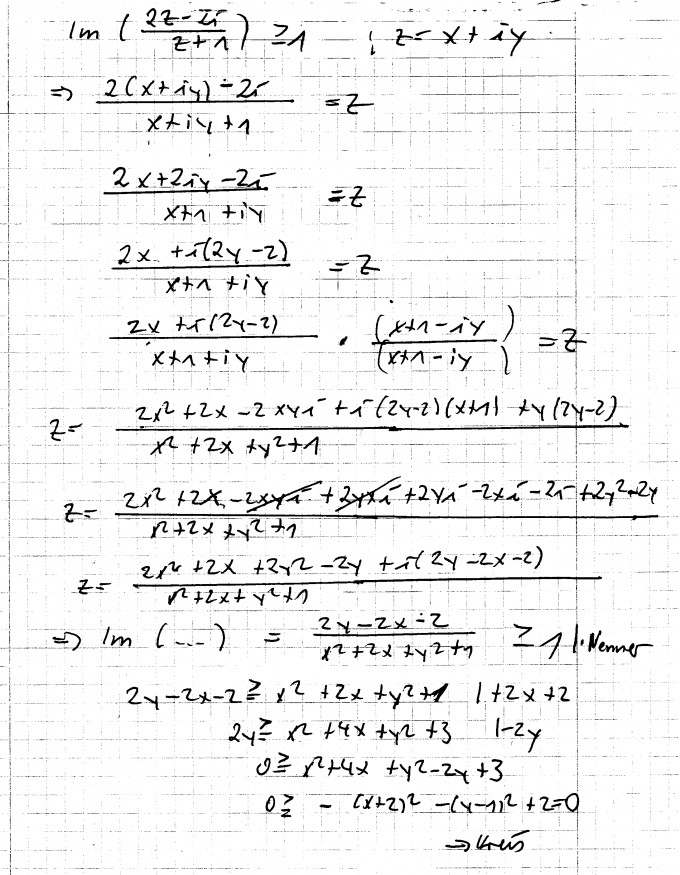 Im (2z-2i / z+1) ≥ 1 ; z = x + iy
⇒ 2(x+iy) - 2i / x+iy+1 = z
2x+2iy-2i / x+1+iy = z
2x + i(2y-2) / x+1+iy = z
2x + i(2y-2) / x+1+iy · (x+1-iy) / (x+1-iy) = z
z = 2x² + 2x - 2xyi + i(2y-2)(x+1) + y(2y-2) / x² + 2x + y² + 1
z = 2x² + 2x - 2xyi + 2yxi + 2yi - 2xi - 2i + 2y² - 2y / x² + 2x + y² + 1
z = 2x² + 2x + 2y² - 2y + i(2y - 2x - 2) / x² + 2x + y² + 1
⇒ Im (...) = 2y - 2x - 2 / x² + 2x + y² + 1 ≥ 1 |· Nenner
2y - 2x - 2 ≥ x² + 2x + y² + 1 | + 2x + 2
2y ≥ x² + 4x + y² + 3 | - 2y
0 ≥ x² + 4x + y² - 2y + 3
0 ≥ - (x+2)² - (y-1)² + 2 = 0
⇒ Kreis